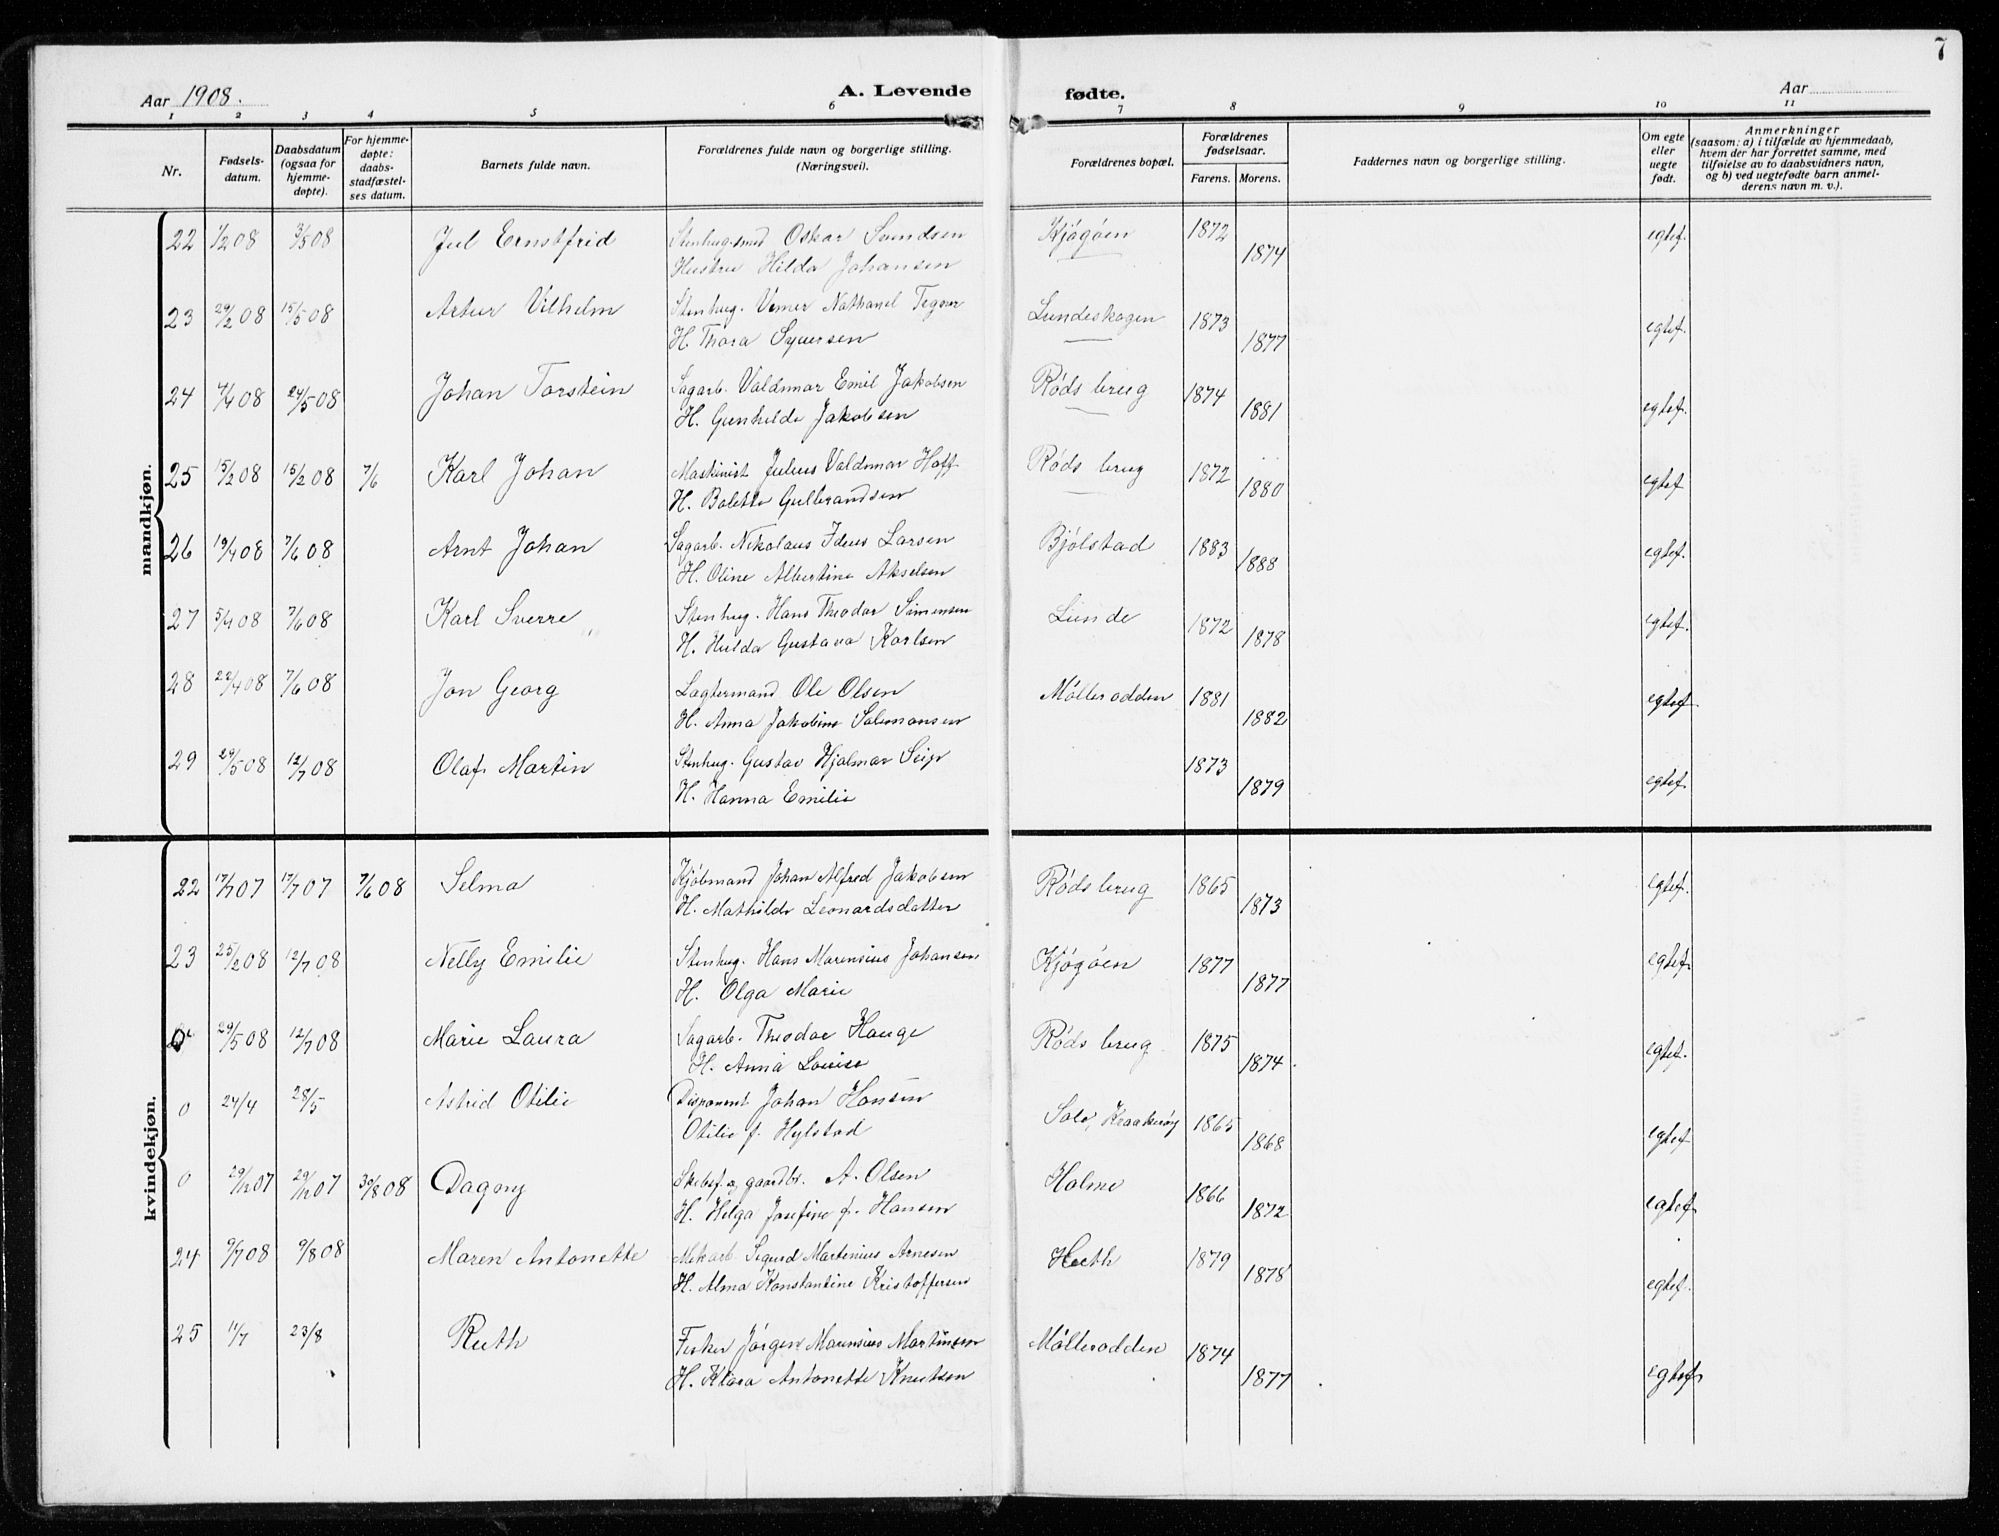 7
Aar 1908.
A. Levende fødte.
Aar
1 2 3 4 5 6 7 8 9 10 11
Nr.
Fødsels-
datum.
Daabsdatum
(ogsaa for
hjemme-
døpte).
For hjemme-
døpte:
daabs-
stadfæstel-
ses datum.
Barnets fulde navn.
Forældrenes fulde navn og borgerlige stilling.
(Næringsvei).
Forældrenes bopæl.
Forældrenes
fødselsaar.
Farens. Morens.
Faddernes navn og borgerlige stilling.
Om egte
eller
uegte
født.
Anmerkninger
(saasom: a) i tilfælde av hjemmedaab,
hvem der har forrettet samme, med
tilføielse av to daabsvidners navn,
og b) ved uegtefødte barn anmel-
derens navn m. v.).
mandkjøn.
22 1/2 08 3/5 08 Jul Ernstfrid Stenhugsmed Oskar Svendsen Kjøgøen 1872 egtef.
Hustru Hilda Johansen 1874
23 29/2 08 15/5 08 Artur Vilhelm Stenhug. Verner Nathanel Tegner Lundeskogen 1873 egtef.
H. Thora Syversen 1877
24 7/4 08 24/5 08 Johan Torstein Sagarb. Valdemar Emil Jakobsen Røds brug 1874 egtef.
H. Gunhilda Jakobsen 1881
25 15/2 08 15/2 08 7/6 Karl Johan Maskinist Julius Valdemar Hoff Røds brug 1872 egtef.
H. Bolette Gulbrandsen 1880
26 19/4 08 7/6 08 Arnt Johan Sagarb. Nikolaus Ideus Larsen Bjølstad 1883 egtef.
H. Oline Albertine Akselsen 1888
27 5/4 08 7/6 08 Karl Sverre Stenhug. Hans Theodor Simensen Lunde 1872 egtef.
H. Hulda Gustava Karlsen 1878
28 22/4 08 7/6 08 Jon Georg Lagtermand Ole Olsen Mølleradden 1881 egtef.
H. Anna Jakobine Salomonsen 1882
29 29/5 08 12/7 08 Olaf Martin Stenhug. Gustav Hjalmar 1873 egtef.
H. Hanna Emilie 1879
kvindekjøn.
22 17/7 07 17/7 07 7/6 08 Selma Kjøbmand Johan Alfred Jakobsen Røds brug 1865 egtef.
H. Mathilde Leonardsdatter 1873
23 25/2 08 12/7 08 Nelly Emilie Stenhug. Hans Marensius Johansen Kjøgøen 1877 egtef.
H. Olga Marie 1877
0 29/5 08 12/7 08 Marie Laura Sagarb. Theodor Hauge Røds brug 1875 egtef.
H. Anna Louise 1874
0 24/4 28/5 Astrid Otilie Disponent Johan Hansen Solv, Kraakerøy 1865 egtef.
Otilie f. Hylstad 1868
0 29/12 07 29/12 07 30/8 08 Dagny Skibsf. og gaardbr. A. Olsen Holme 1866 egtef.
H. Helga Josefine f. Hansen 1872
24 9/7 08 9/8 08 Maren Antonette Mekarb. Sigurd Martinius Arnesen Huth 1879 egtef.
H. Alma Konstantine Kristoffersen 1878
25 11/7 23/8 Ruth Fisker Jørgen Marensius Martinsen Mølleradden 1874 egtef.
H. Klara Antonette Knutsen 1877